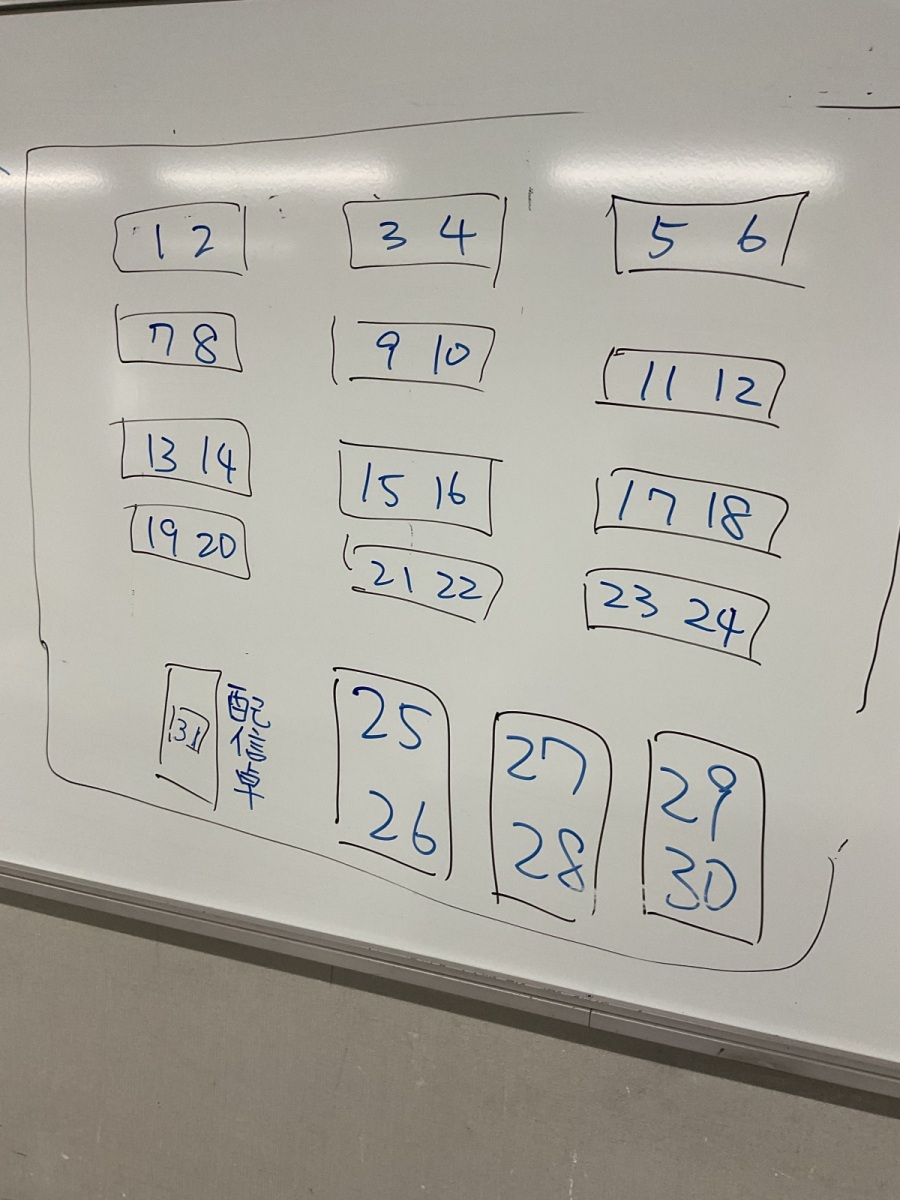 1 2 3 4 5 6
7 8 9 10 11 12
13 14 15 16 17 18
19 20 21 22 23 24
31
配信卓
25
26
27
28
29
30